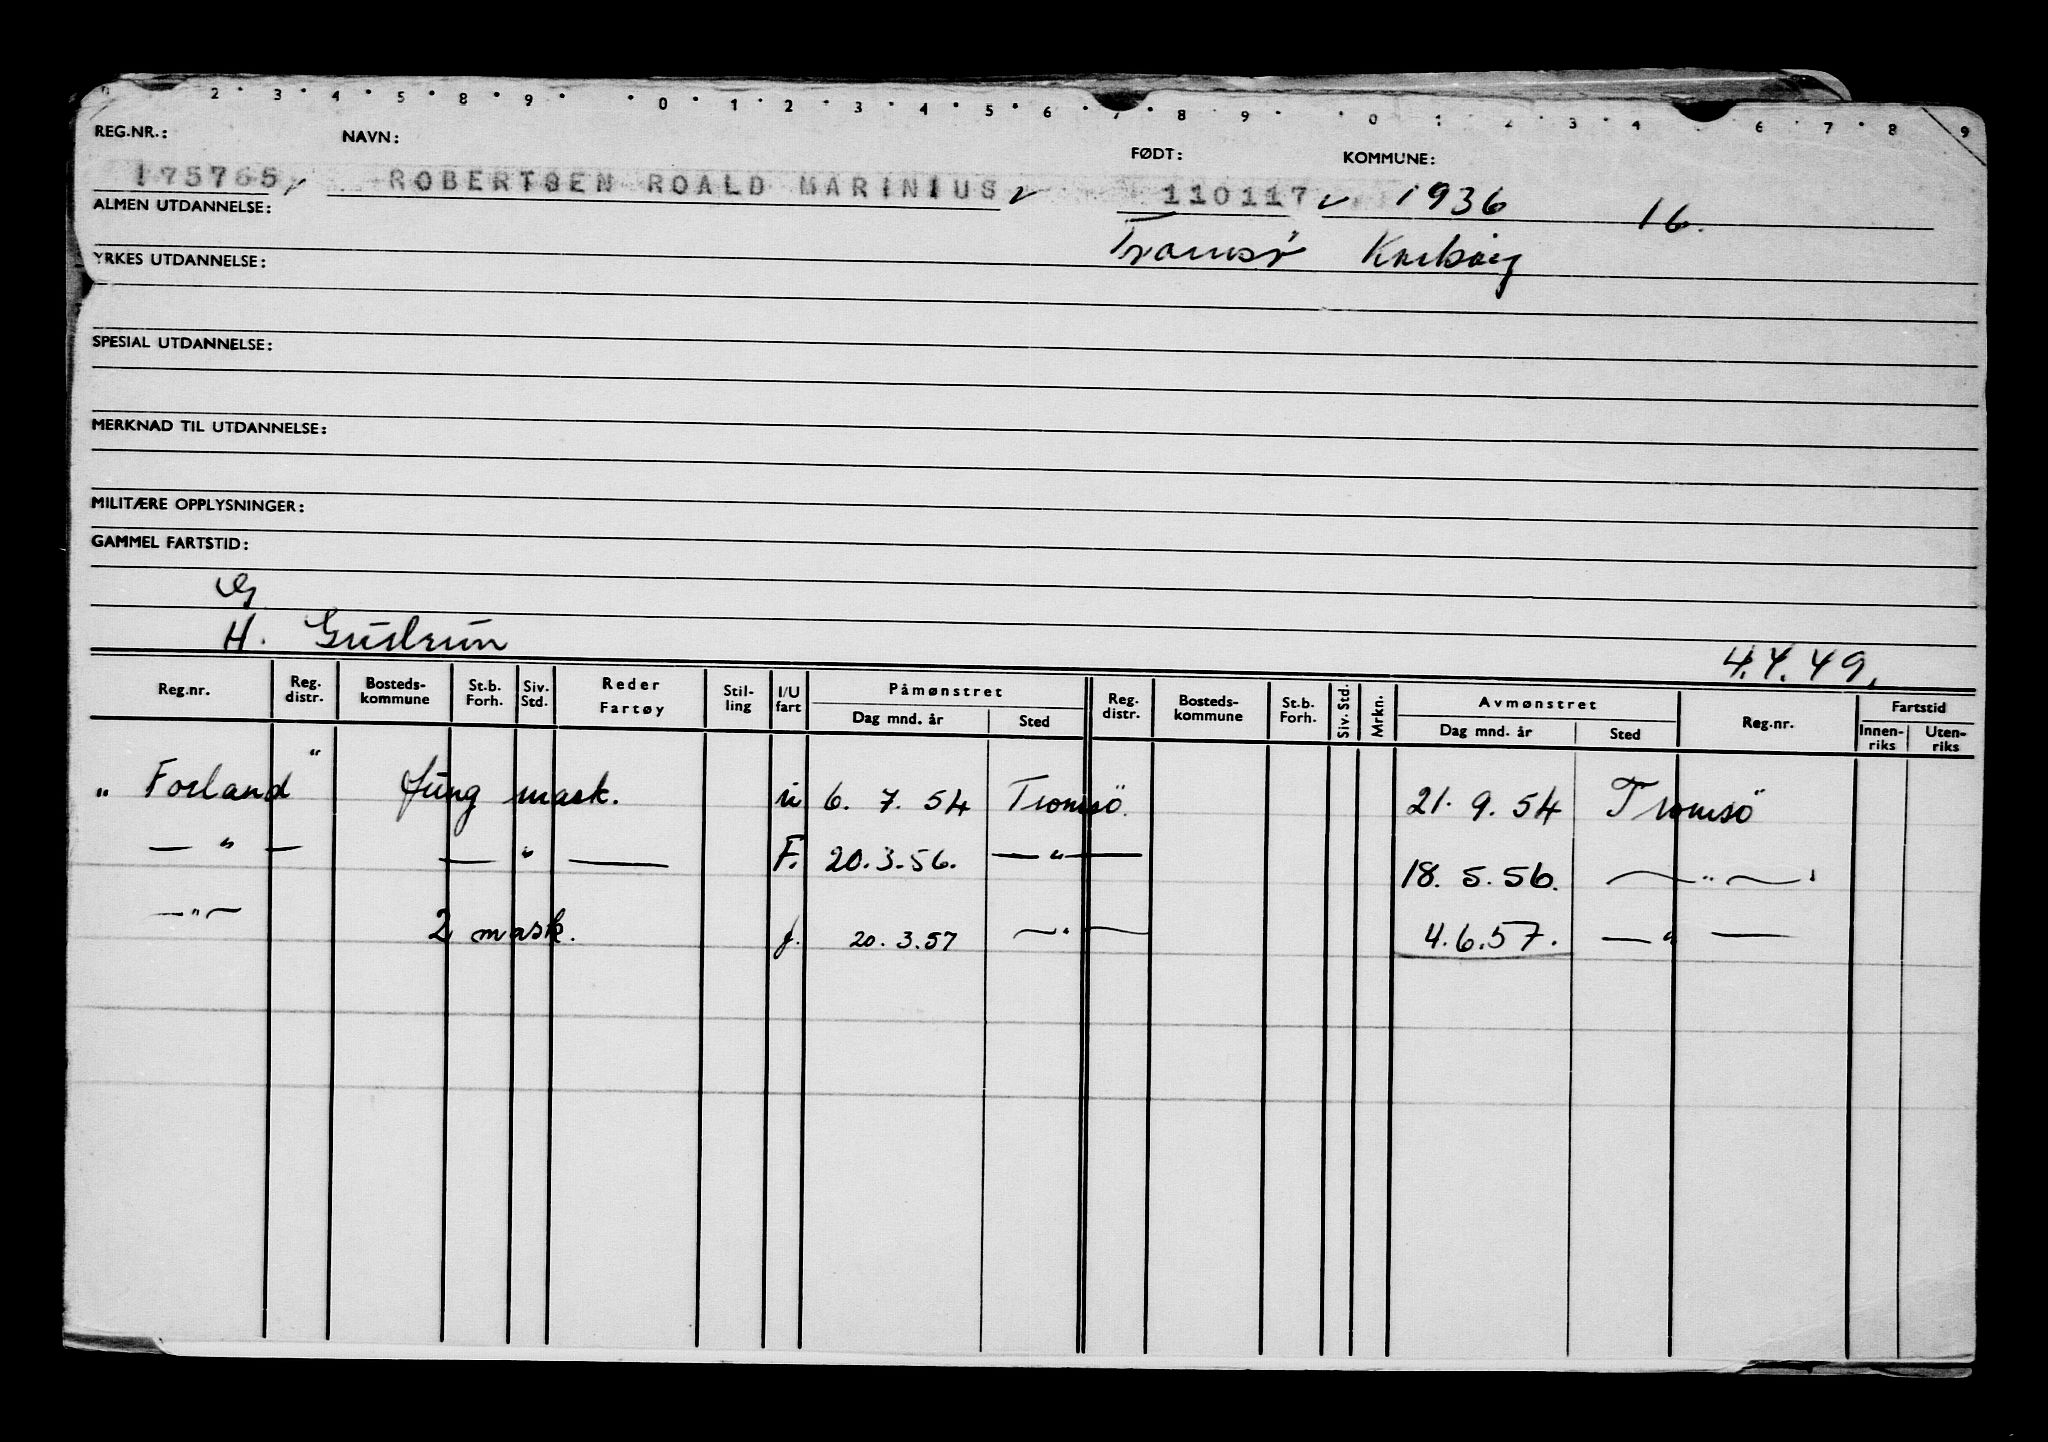 2 · 3 · 4 · 5 · 8 · 9 · · 0 · 1 · 2 · 3 · 4 · 5 · 6 · 7 · 8 · 9 · · 0 · 1 · 2 · 3 · 4 · 6 · 7 · 8 · 9
REG.NR.: NAVN: FØDT: KOMMUNE:
175765 ROBERTSEN ROALD MARINIUS 110117 1936 16.
ALMEN UTDANNELSE:
Tromsø
YRKES UTDANNELSE:
SPESIAL UTDANNELSE:
MERKNAD TIL UTDANNELSE:
MILITÆRE OPPLYSNINGER:
GAMMEL FARTSTID:
G
H. Gudrun 4.7.49.
Reg.nr. Reg. distr. Bosteds-kommune St.b. Forh. Siv. Std. Reder Fartøy Stil-ling I/U fart Påmønstret Dag mnd. år Sted Reg. distr. Bosteds-kommune St.b. Forh. Siv. Std. Mrkn. Avmønstret Dag mnd. år Sted Reg.nr. Fartstid Innen-riks Uten-riks
" Forland " Jung mask. u 6. 7. 54 Tromsö. 21. 9. 54 Tromsö
— " — — " — F. 20.3.56. — " — 18. 5. 56. — " —
— " — 2 mask. f. 20. 3. 57 — " — 4.6.57. — " —